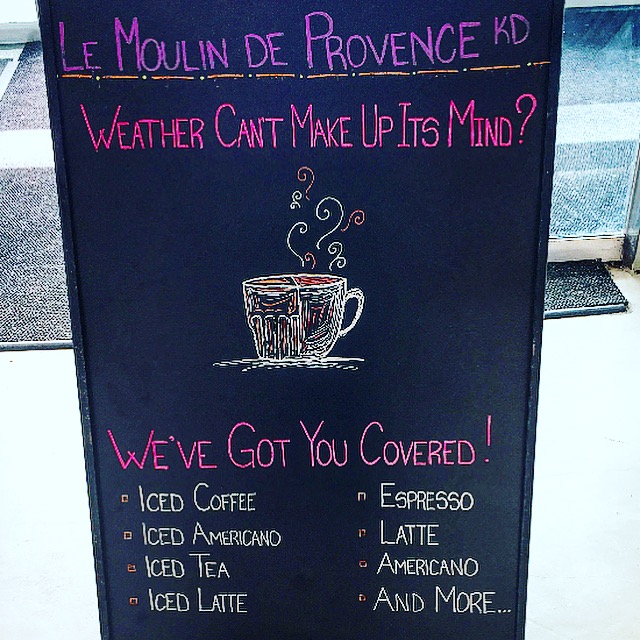 LE MOULIN DE PROVENCE KD
WEATHER CAN'T MAKE UP ITS MIND?
WE'VE GOT YOU COVERED!
ICED COFFEE
ICED AMERICANO
ICED TEA
ICED LATTE
ESPRESSO
LATTE
AMERICANO
AND MORE...